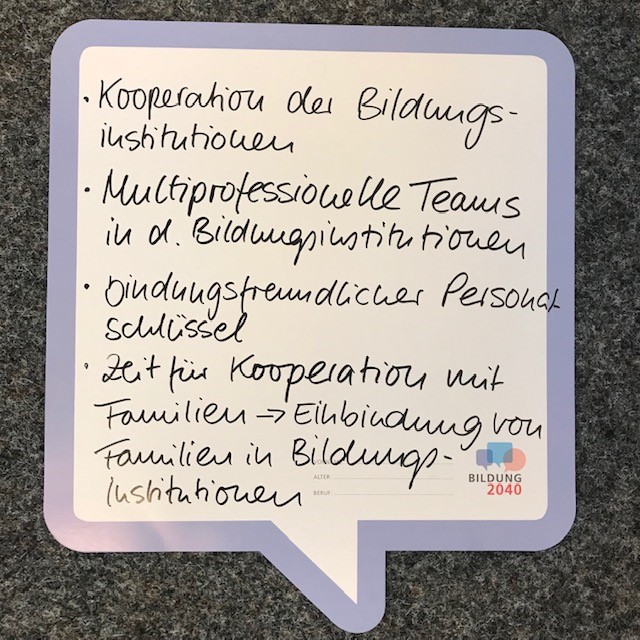 · Kooperation der Bildungs-
institutionen
· Multiprofessionelle Teams
in d. Bildungsinstitutionen
· bindungsfreundlicher Personal
schlüssel
· Zeit für Kooperation mit
Familien → Einbindung von
Familien in Bildungs-
Institutionen
ALTER
BERUF
BILDUNG
2040